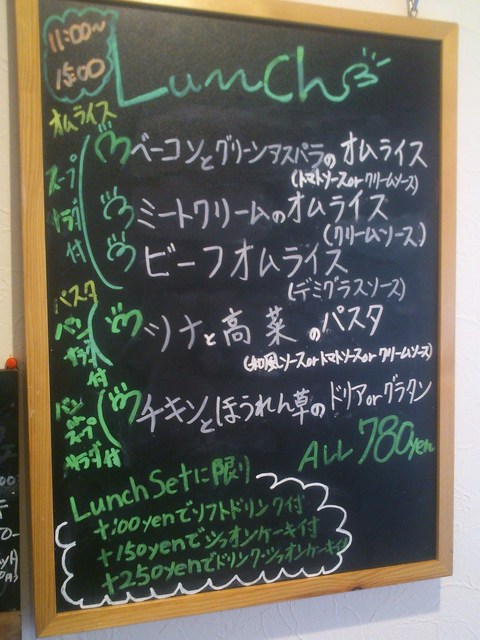 11:00〜
15:00
Lunch
オムライス
スープ
サラダ
付
ベーコンとグリーンアスパラのオムライス
(トマトソースorクリームソース)
ミートクリームのオムライス
(クリームソース)
ビーフオムライス
(デミグラスソース)
パスタ
パン
サラダ
付
ツナと高菜のパスタ
(和風ソースorトマトソースorクリームソース)
パン
スープ
サラダ付
チキンとほうれん草のドリアorグラタン
ALL 780yen
Lunch Setに限り
+100yenでソフトドリンク付
+150yenでシフォンケーキ付
+250yenでドリンク・シフォンケーキ付